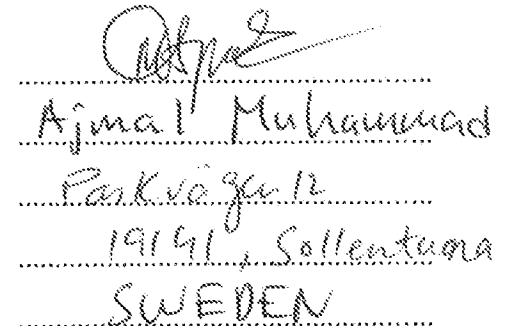 Ajmal Muhammad
Parkvägen 12
19141, Sollentuna
SWEDEN